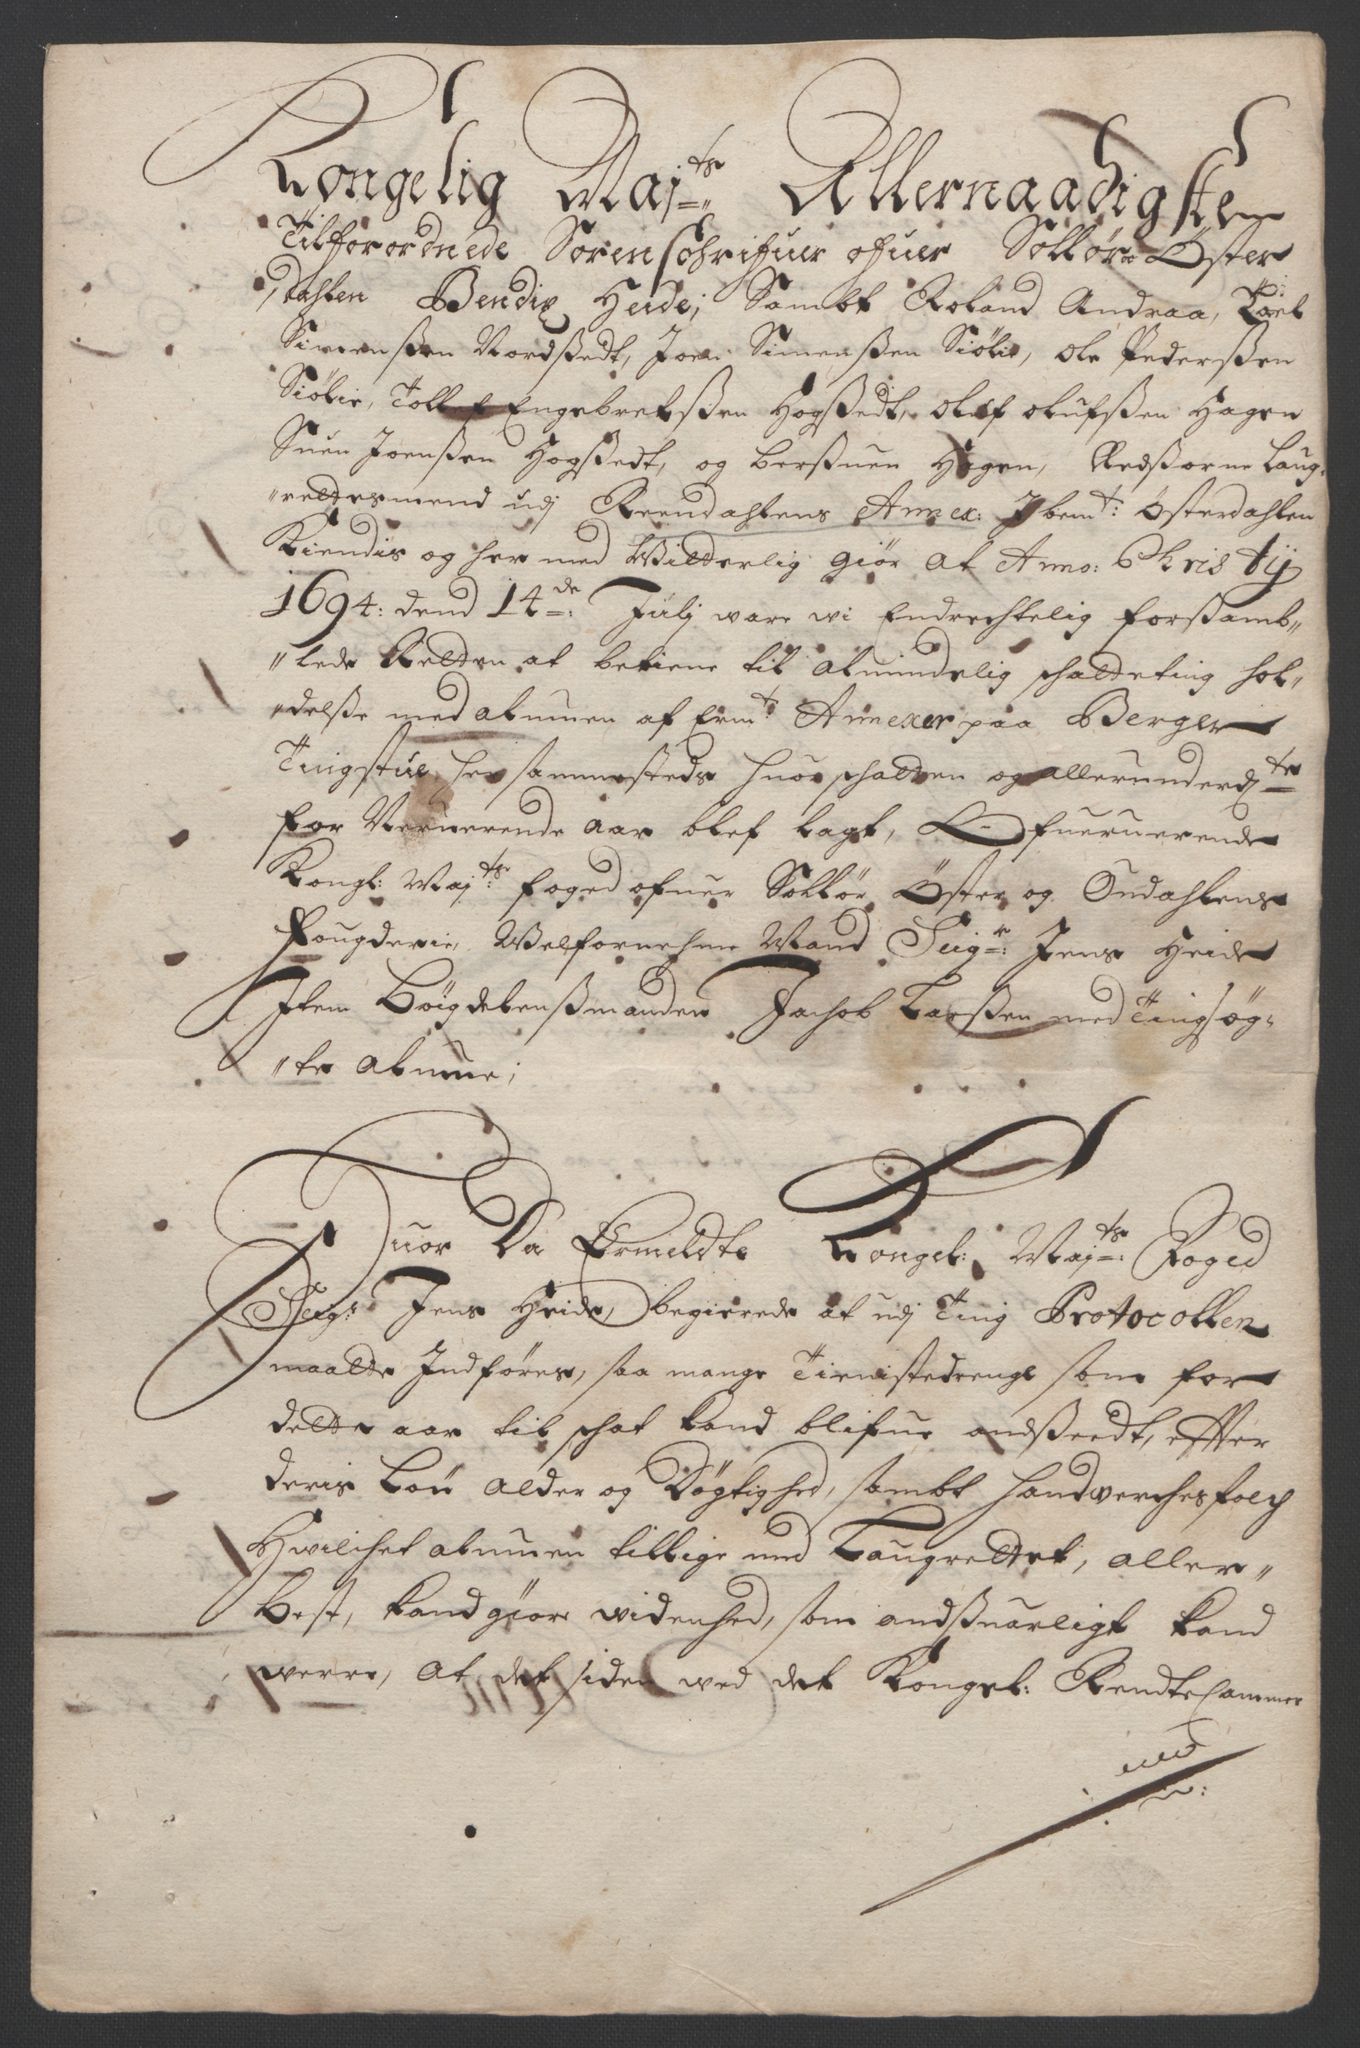 Kongelig Maj:ts Allernaadigste
Tilforordnede Sorenschrifuer ofuer Solløer Øster
dahlen Bendix Heide, Sambt Roland Andraa, Toel
Simensßen Nordsßedt, Joen Simensßen Siølie, Ole Pedersßen
Siølie, Tollef Engebretsßen Hogsßedt, Oluf Olufsßen Hagen
Suen Joensßen Hogsßedt, og Bersßuen Hagen, Edsßorne Laug-
rettesmend udj Reendahlens Annex: J bem:te Østerdahlen
Kiendis og her med Witterlig giør at Anno: Christij
1694: dend 14de: Julij ware wi Endrechtelig forsßamb-
lede Retten at betiene til Almindelig schatteting hol-
delsße med Almuen af Erm:te Annexer paa Berger
Tingstue her sammesteds huor schatten og allerunderd:te
for Nerwerende aar blef lagt, Ofueruerende
Kongl: Maj:ts foged ofuer Solløer Øster og Ourdahlens
Fougderie, Welfornehme Mand Seig:r Jens Heide
Item Bøigdelensßmanden Jachob Larsßen med Tingsøg-
te Almue;
Huor Da Ermeldte Kongel: Maj:ts Foged
Seig:r Jens Heide, begierede at udj Ting Protocollen
maatte Indføres, saa mange Tienistedrenge som for
dette aar til schat kand blifue andsßeedt, efter
deris Løn Alder og Døgtighed, sambt handwerchesfolch
Hwilchet Almuen tillige med Laugrettet, aller-
Best, kand giøre widenhed, som andsßuarligt kand
werre, at det siden wed det Kongel: Rendte Cammer